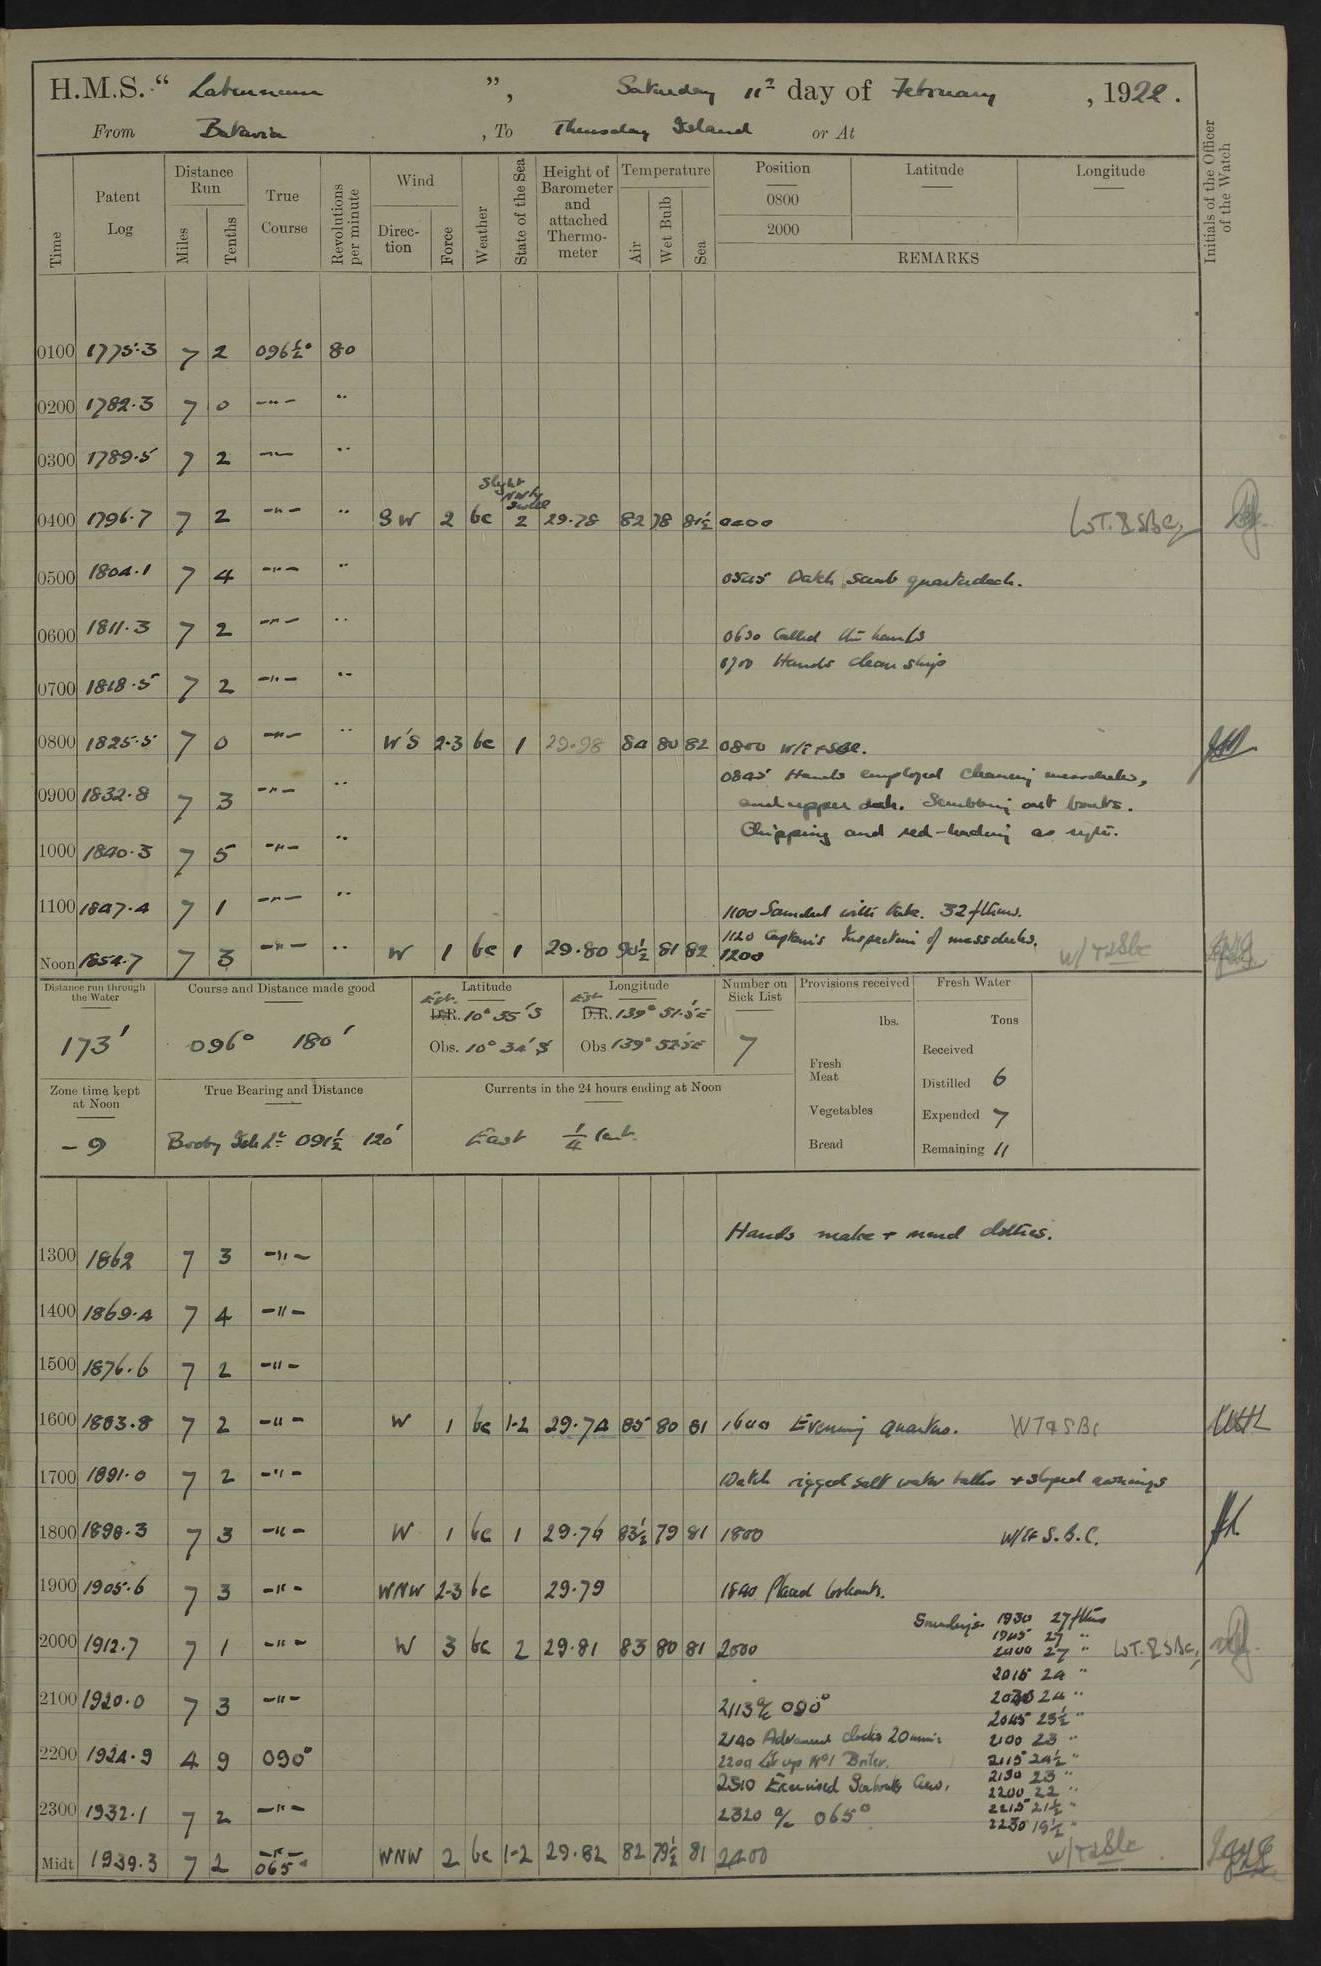 H.M.S. “ Laburnum ”, Saturday 11th day of February, 1922.
From Batavia, To Thursday Island or At
Time
Patent Log
Distance Run
Miles
Tenths
True Course
Revolutions per minute
Wind
Direc-tion
Force
Weather
State of the Sea
Height of Barometer and attached Thermo-meter
Temperature
Air
Wet Bulb
Sea
Position
0800
2000
Latitude
Longitude
REMARKS
Initials of the Officer of the Watch
0100 1775.3 7 2 096½° 80
0200 1782.3 7 0 -"- "
0300 1789.5 7 2 -"- "
Slight
NW'ly
Swell
0400 1796.7 7 2 -"- " SW 2 bc 2 29.78 82 78 81½ 0400 W.T. & SBC
0500 1804.1 7 4 -"- " 0545 Watch scrub quarterdeck.
0600 1811.3 7 2 -"- " 0630 Called the hands
0700 Hands clean ship
0700 1818.5 7 2 -"- "
0800 1825.5 7 0 -"- " W'S 2-3 bc 1 29.98 84 80 82 0800 W/T & SBC.
0845 Hands employed cleaning messdecks,
0900 1832.8 7 3 -"- " and upper deck. Scrubbing out boats.
Chipping and red-leading as reqte.
1000 1840.3 7 5 -"- "
1100 1847.4 7 1 -"- " 1100 Sounded with tube. 32 fthms.
1120 Captain's Inspection of messdecks.
Noon 1854.7 7 3 -"- " W 1 bc 1 29.80 90½ 81 82 1200 W/T & SBC
Distance run through the Water
173'
Course and Distance made good
096° 180'
Latitude
Est. D.R. 10° 35' S
Obs. 10° 34' S
Longitude
Est. D.R. 139° 51.5' E
Obs 139° 52.5' E
Number on Sick List
7
Provisions received
lbs.
Fresh Meat
Vegetables
Bread
Fresh Water
Tons
Received
Distilled 6
Expended 7
Remaining 11
Zone time kept at Noon
- 9
True Bearing and Distance
Booby Isle Lt 091½ 120'
Currents in the 24 hours ending at Noon
East ¼ knt.
Hands make & mend clothes.
1300 1862 7 3 -"-
1400 1869.4 7 4 -"-
1500 1876.6 7 2 -"-
1600 1883.8 7 2 -"- W 1 bc 1-2 29.74 85 80 81 1600 Evening Quarters. WT & SBC
1700 1891.0 7 2 -"- Watch rigged salt water baths & sloped awnings
1800 1898.3 7 3 -"- W 1 bc 1 29.76 83½ 79 81 1800 W/T S.B.C.
1900 1905.6 7 3 -"- WNW 2-3 bc 29.79 1840 Placed lookouts.
Soundings. 1930 27 fthms
1945 27 "
2000 1912.7 7 1 -"- W 3 bc 2 29.81 83 80 81 2000 2000 27 " W.T. & SBC
2015 24 "
2100 1920.0 7 3 -"- 2113 a/c 090° 2030 24 "
2045 23½ "
2140 Advanced clocks 20 mins 2100 23 "
2200 1924.9 4 9 090° 2200 Lit up No 1 Boiler. 2115 24½ "
2130 23 "
2310 Exercised Seaboats Crew. 2200 22 "
2300 1932.1 7 2 -"- 2320 a/c 065° 2215 21½ "
2230 19½ "
Midt 1939.3 7 2 -"- 065° WNW 2 bc 1-2 29.82 82 79½ 81 2400 W/T & SBC